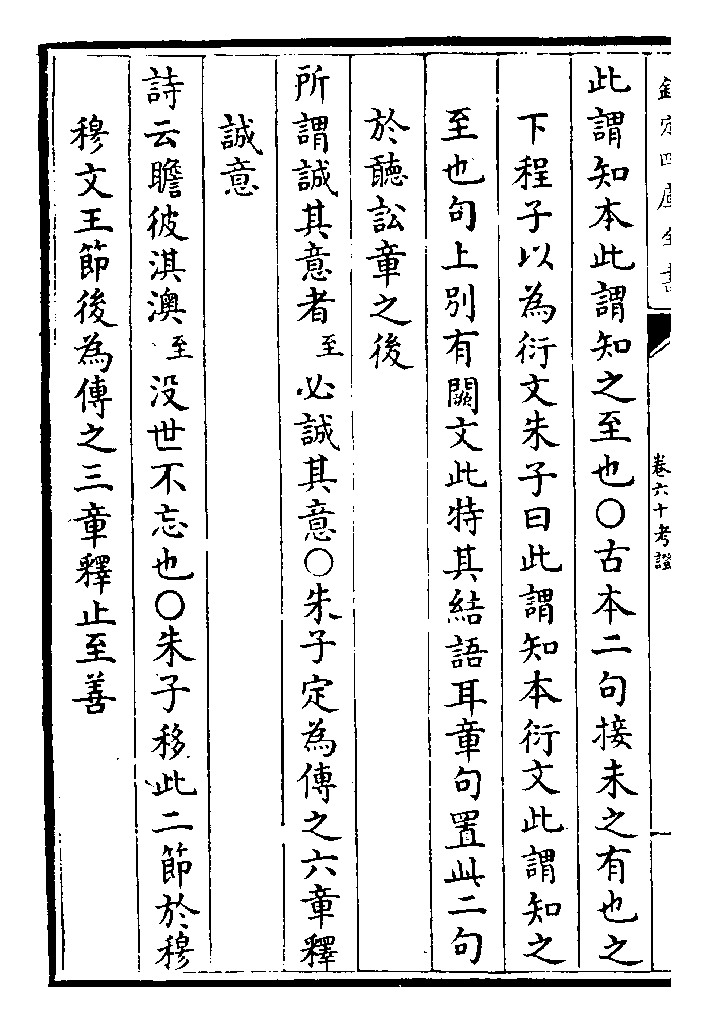 欽定四庫全書
卷六十考證
此謂知本此謂知之至也〇古本二句接未之有也之
下程子以為衍文朱子曰此謂知本衍文此謂知之
至也句上別有闕文此特其結語耳章句置此二句
於聽訟章之後
所謂誠其意者至必誠其意〇朱子定為傳之六章釋
誠意
詩云瞻彼淇澳至没世不忘也〇朱子移此二節於穆
穆文王節後為傳之三章釋止至善